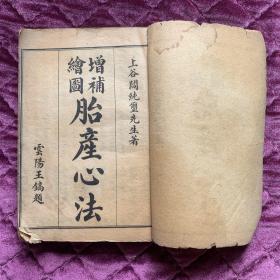 上谷閻純璽先生著
增補
繪圖
胎產心法
雲陽王鎬題